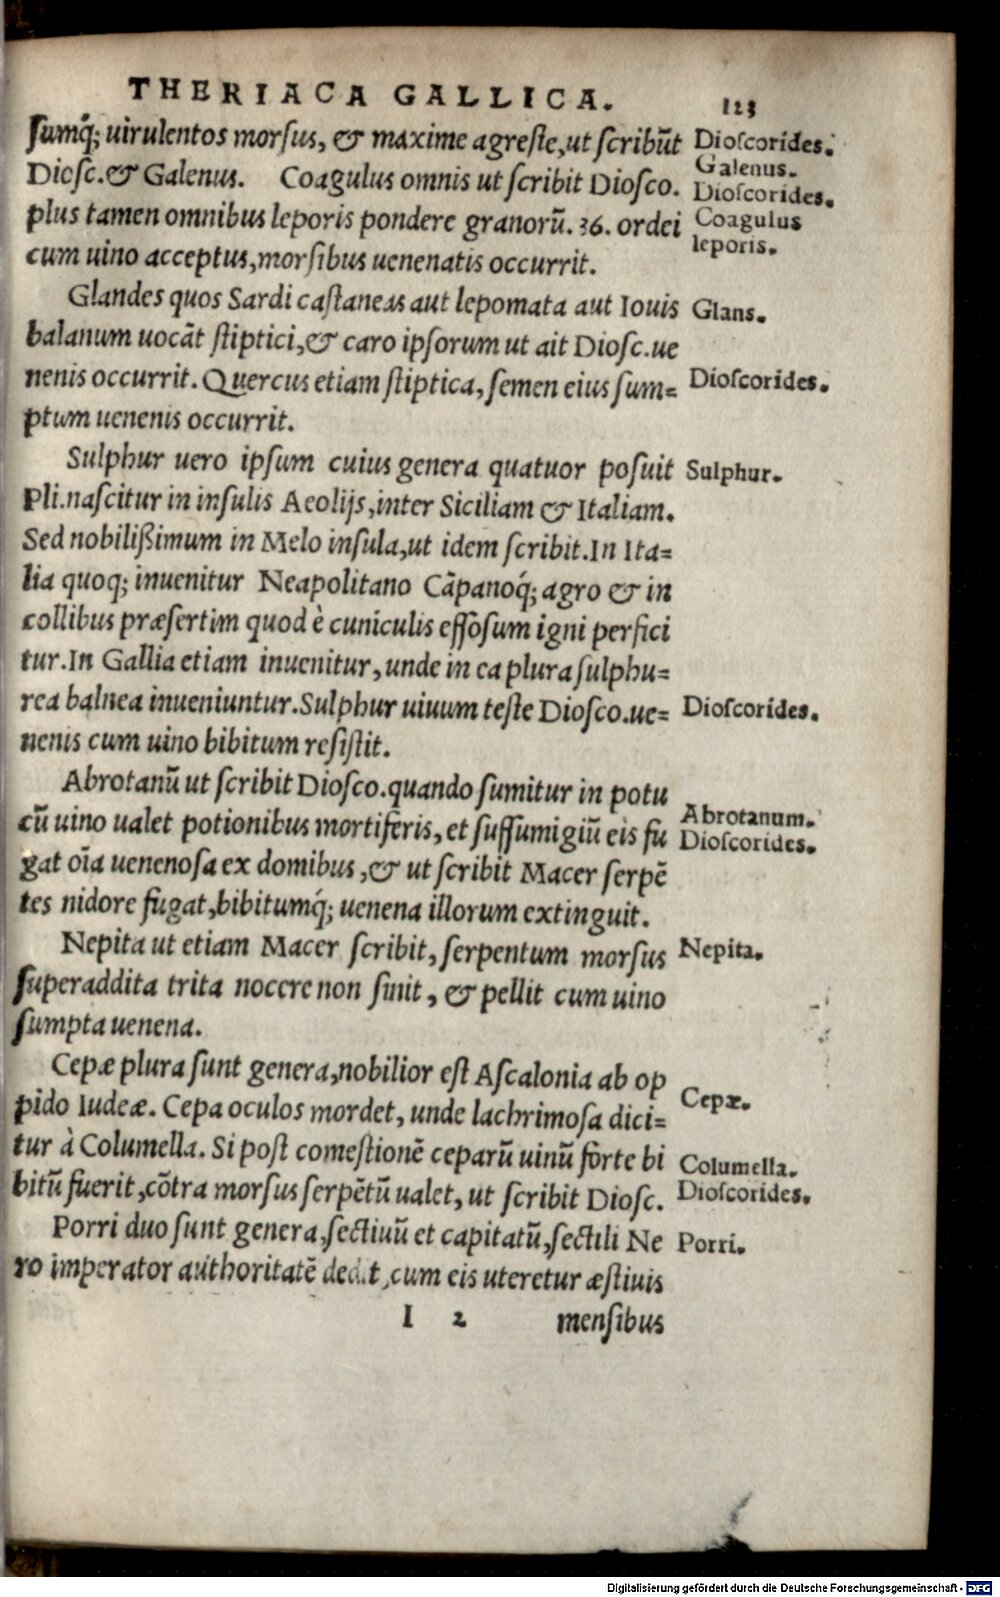 THERIACA GALLICA. 123
sumq́; uirulentos morsus, & maxime agreste, ut scribūt Dioscorides.
Galenus.
Diosc. & Galenus. Coagulus omnis ut scribit Diosco. Dioscorides.
plus tamen omnibus leporis pondere granorū. 36. ordei Coagulus
leporis.
cum uino acceptus, morsibus uenenatis occurrit.
Glandes quos Sardi castaneas aut lepomata aut Iouis Glans.
balanum uocāt stiptici, & caro ipsorum ut ait Diosc. ue
nenis occurrit. Quercus etiam stiptica, semen eius sum= Dioscorides.
ptum uenenis occurrit.
Sulphur uero ipsum cuius genera quatuor posuit Sulphur.
Pli. nascitur in insulis Aeolijs, inter Siciliam & Italiam.
Sed nobilißimum in Melo insula, ut idem scribit. In Ita=
lia quoq; inuenitur Neapolitano Cāpanoq́; agro & in
collibus præsertim quod è cuniculis effosum igni perfici
tur. In Gallia etiam inuenitur, unde in ea plura sulphu=
rea balnea inueniuntur. Sulphur uiuum teste Diosco. ue= Dioscorides.
nenis cum uino bibitum resistit.
Abrotanū ut scribit Diosco. quando sumitur in potu
Abrotanum.
cū uino ualet potionibus mortiferis, et suffumigiū eis fu Dioscorides.
gat oīa uenenosa ex domibus, & ut scribit Macer serpē
tes nidore fugat, bibitumq́; uenena illorum extinguit.
Nepita ut etiam Macer scribit, serpentum morsus Nepita.
superaddita trita nocere non sinit, & pellit cum uino
sumpta uenena.
Cepæ plura sunt genera, nobilior est Ascalonia ab op
pido Iudeæ. Cepa oculos mordet, unde lachrimosa dici= Cepæ.
tur à Columella. Si post comestionē ceparū uinū forte bi Columella.
bitū fuerit, cōtra morsus serpētū ualet, ut scribit Diosc. Dioscorides.
Porri duo sunt genera, sectiuū et capitatū, sectili Ne Porri.
ro imperator authoritatē dedit, cum eis uteretur æstiuis
I 2 mensibus
Digitalisierung gefördert durch die Deutsche Forschungsgemeinschaft - DFG